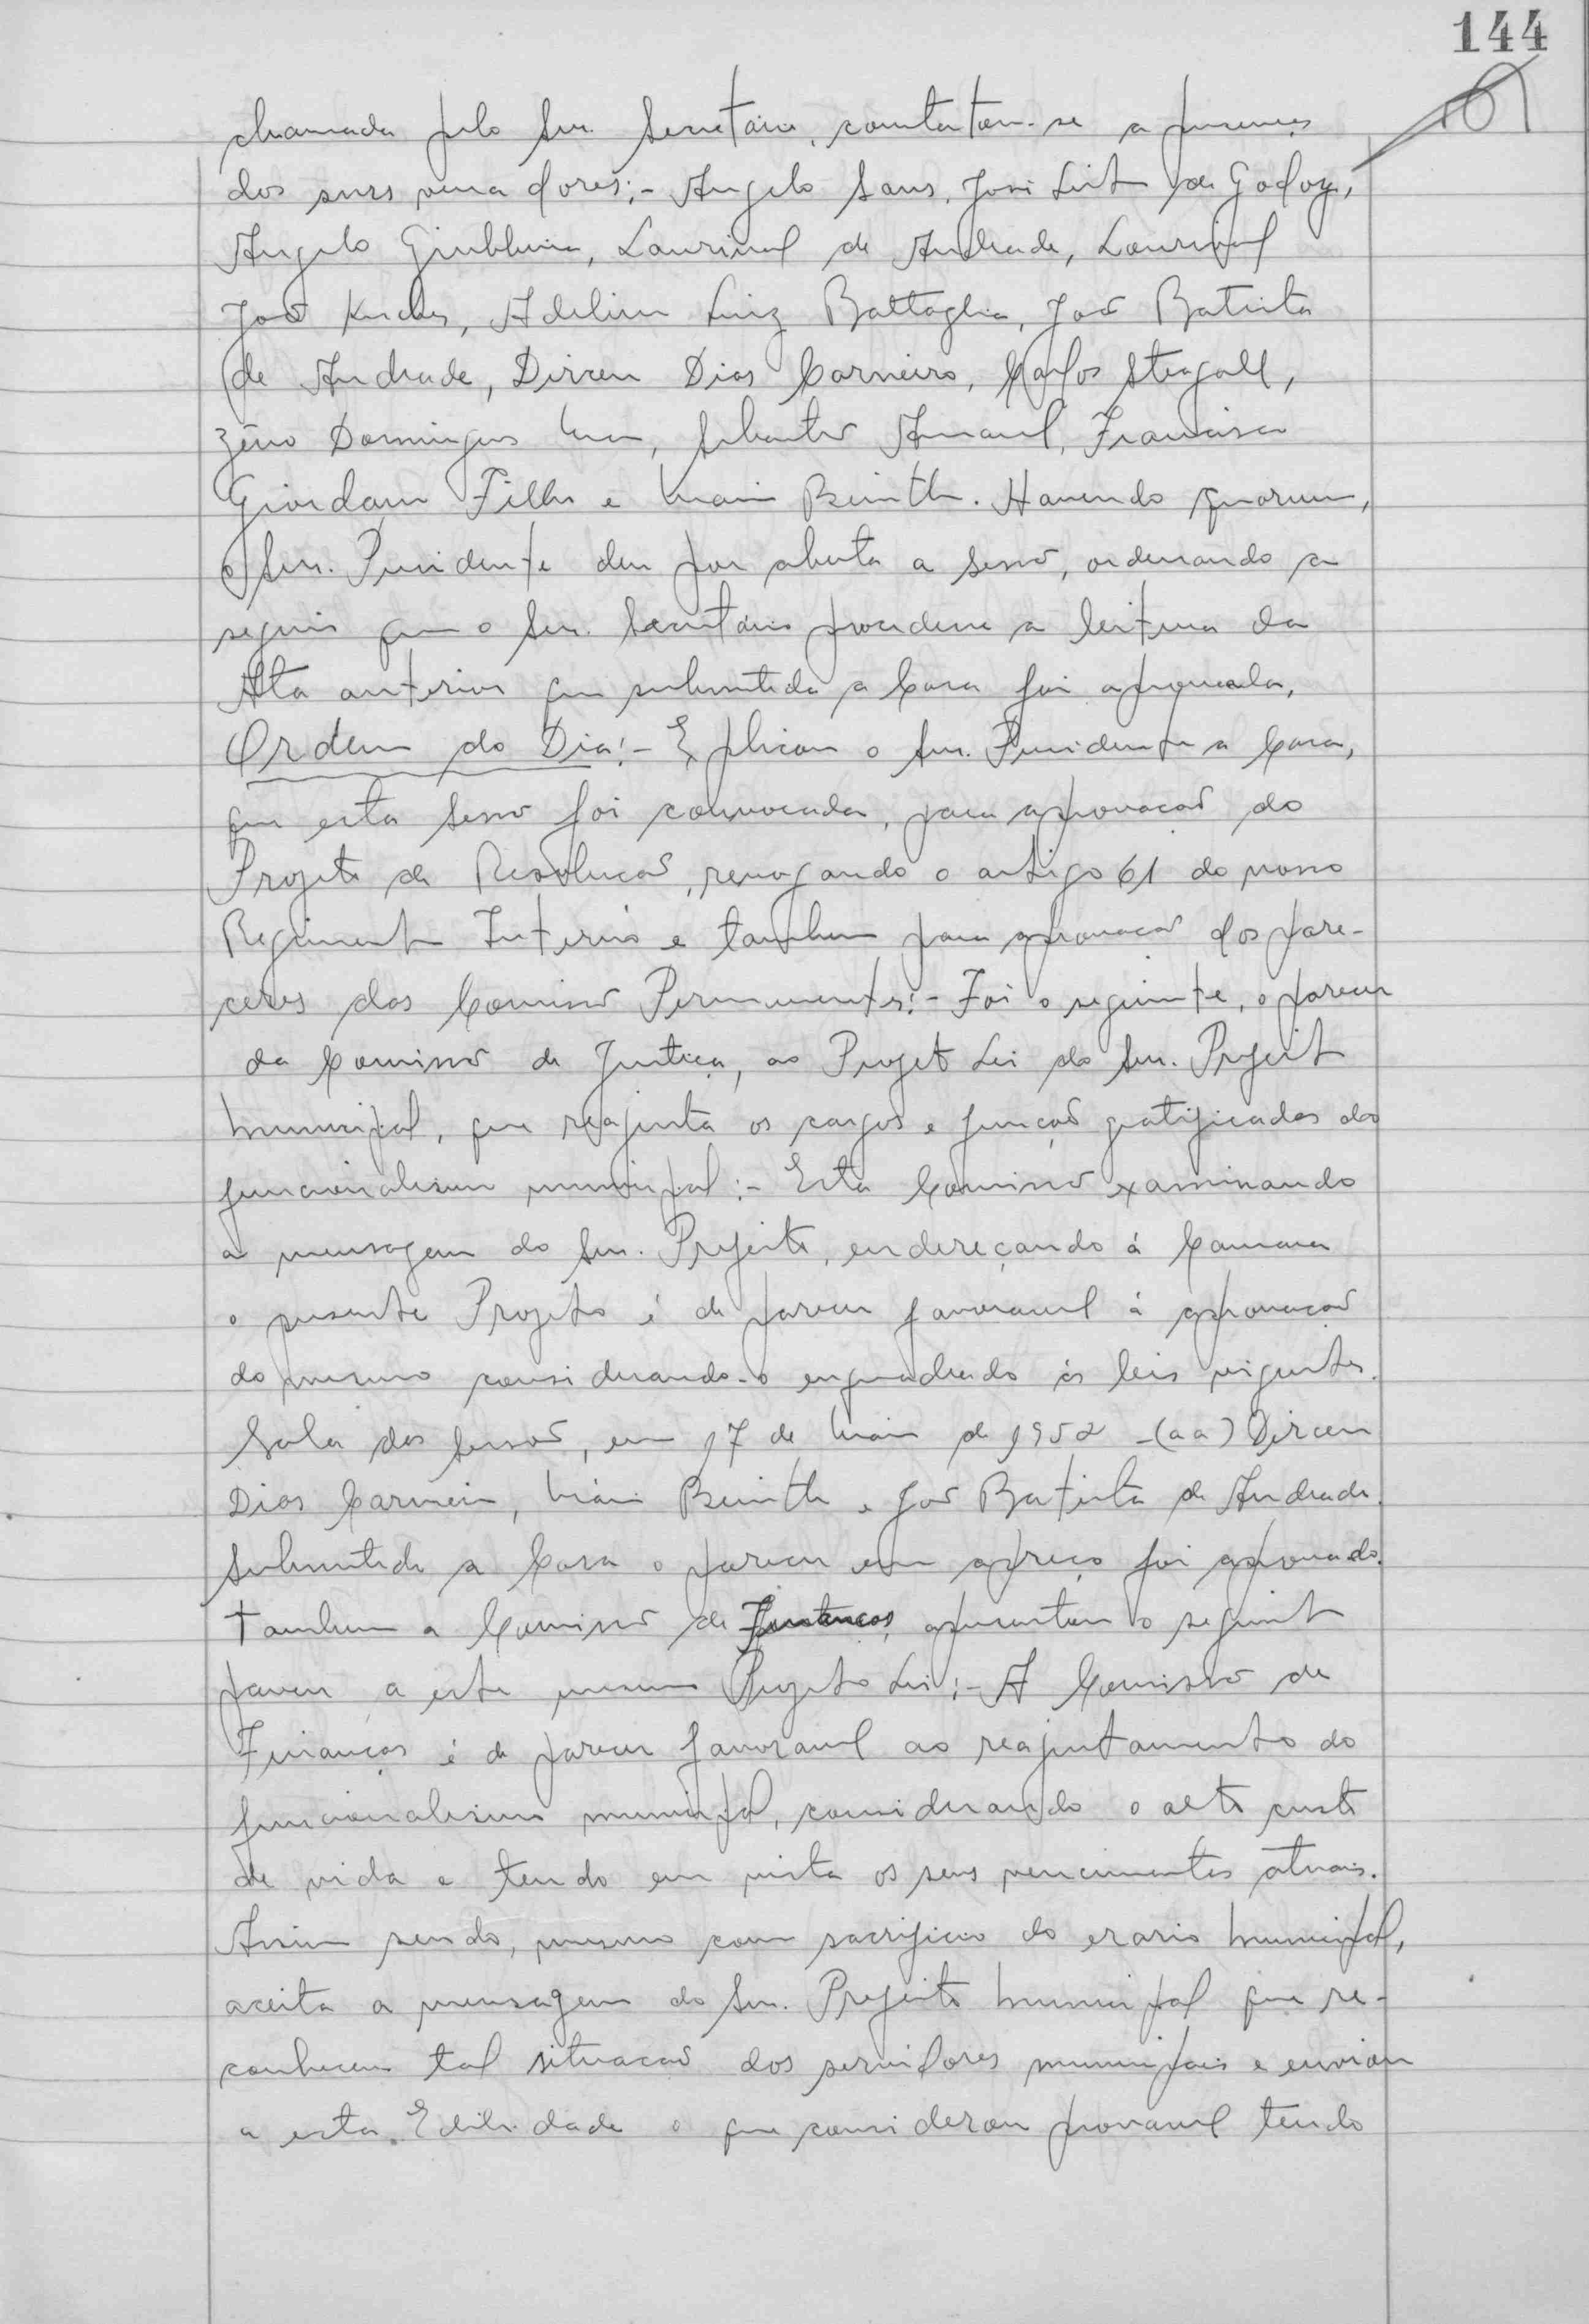 144
chamada pelo Snr. Secretário, constatou-se a presença
dos snrs vereadores:- Angelo Sans, José Leite de Godoy,
Angelo Giubbina, Laurival de Andrade, Lourival
João Kuches, Adelino Luiz Battaglia, João Batista
de Andrade, Dirceu Dias Carneiro, Carlos Steagall,
Zéno Domingos, Silvestre Amaral, Francisco
Giordano Filho e Mario Beinth. Havendo quorum,
o Snr. Presidente deu por aberta a sessão, ordenando a
seguir que o Snr. Secretário procedesse a leitura da
Ata anterior que submetida a Casa foi aprovada.
Ordem do Dia:- Explicou o Snr. Presidente a Casa,
que esta sessão foi convocada, para aprovação do
Projeto de Resolução, revogando o artigo 61 do nosso
Regimento Interno e tambem para aprovação dos pare-
ceres das Comissão Permanentes:- Foi o seguinte, o parecer
da Comissão de Justiça, ao Projeto Lei do Snr. Prefeito
Municipal, que reajusta os cargos e função gratificadas do
funcionalismo municipal:- Esta Comissão examinando
a mensagem do Snr. Prefeito, endereçando á Camara
o presente Projeto é de parecer favoravel á aprovação
do mesmo considerando-o enquadrado ás leis vigentes.
Sala das Sessão, em 17 de Maio de 1952 -(aa) Dirceu
Dias Carneiro, Mário Beinth e João Batista de Andrade.
Submetido a Casa o parecer em apreço foi aprovado.
Tambem a Comissão de Finanças, apresentou o seguinte
parecer a este mesmo Projeto Lei:- A Comissão de
Finanças é de parecer favoravel ao reajustamento do
funcionalismo municipal, considerando o alto custo
de vida e tendo em vista os seus vencimentos atuais.
Assim sendo, mesmo com sacrificio do erario Municipal,
aceita a mensagem do Snr. Prefeito Municipal que re-
conheceu tal situação dos servidores municipais e enviou
a esta Edilidade o que considerou provavel tendo